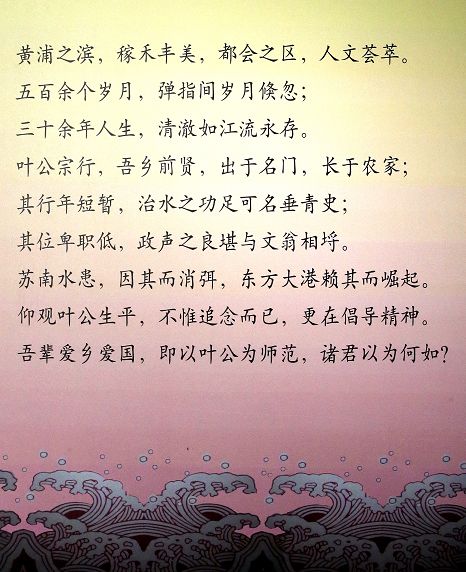 黄浦之滨，稼禾丰美，都会之区，人文荟萃。
五百余个岁月，弹指间岁月倏忽；
三十余年人生，清澈如江流永存。
叶公宗行，吾乡前贤，出于名门，长于农家；
其行年短暂，治水之功足可名垂青史；
其位卑职低，政声之良堪与文翁相埒。
苏南水患，因其而消弭，东方大港赖其而崛起。
仰观叶公生平，不惟追念而已，更在倡导精神。
吾辈爱乡爱国，即以叶公为师范，诸君以为何如？